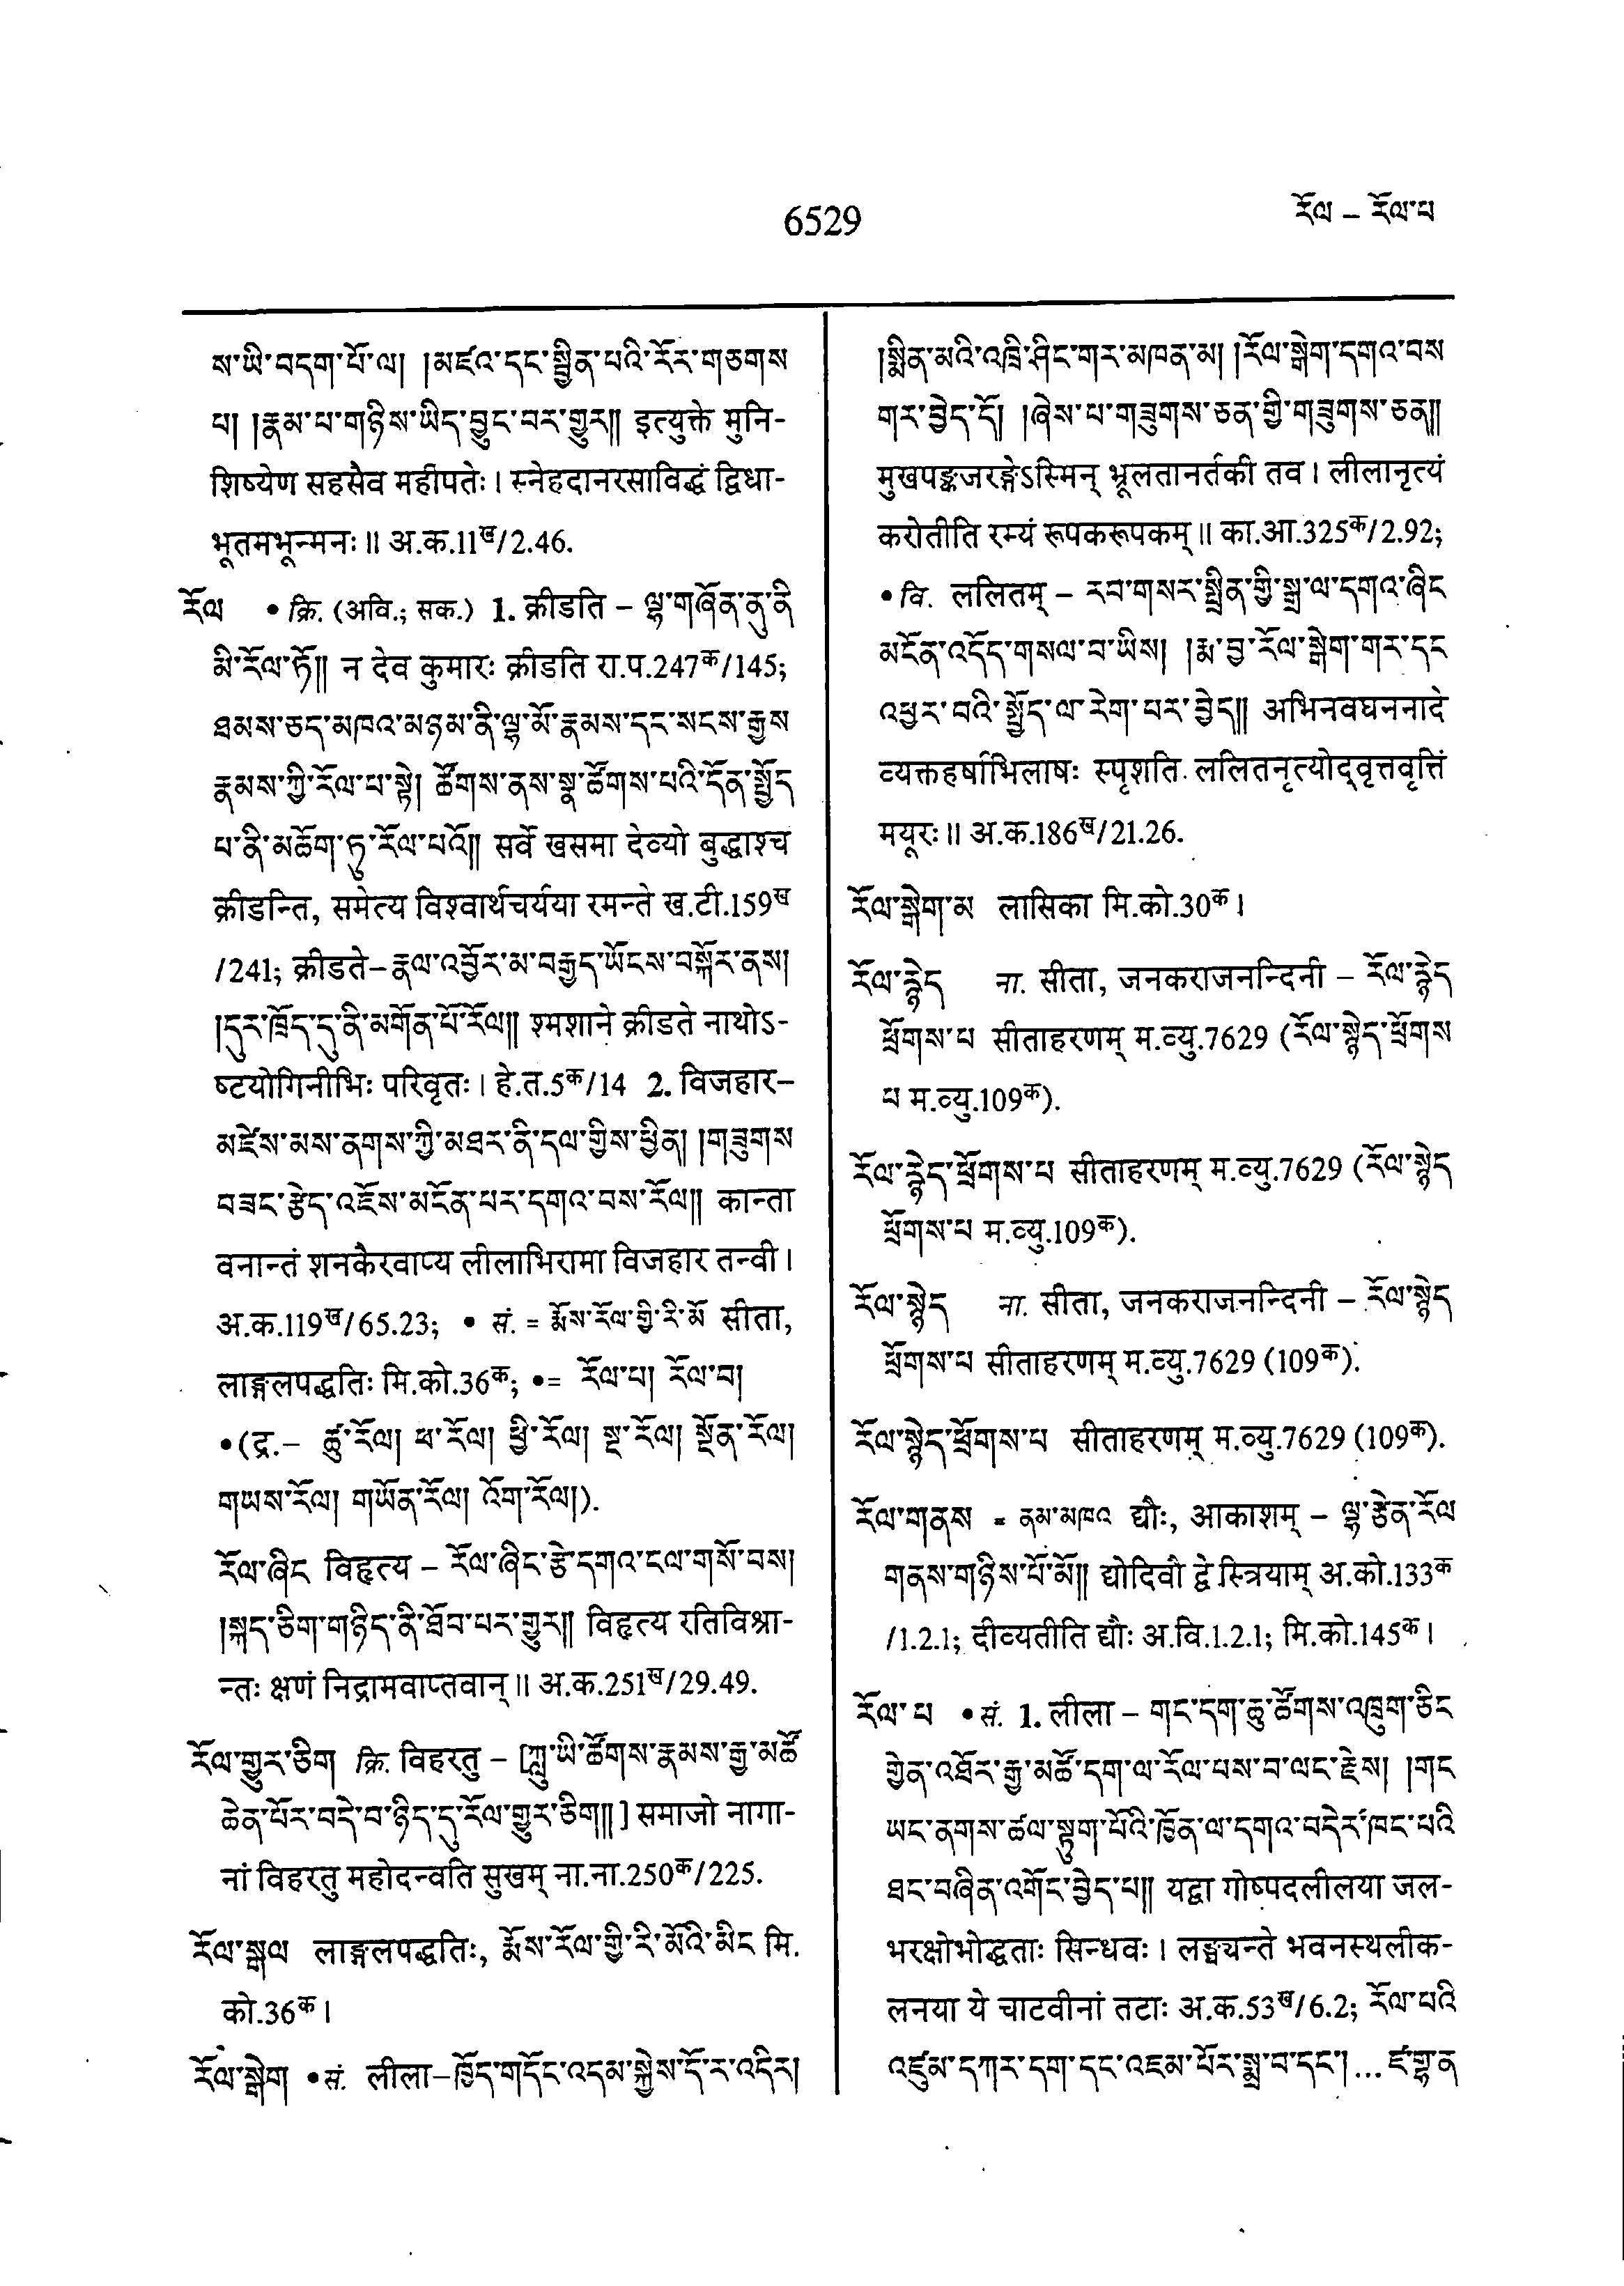 6529
རོལ – རོལ་པ
ས་ཡི་བདག་པོ་ལ། །མཛའ་དང་སྦྱིན་པའི་རོར་གཅགས
པ། །རྣམ་པ་གཉིས་ཡིད་བྱུང་བར་གྱུར།། इत्युक्ते मुनि-
शिष्येण सहसैव महीपतेः। स्नेहदानरसाविद्धं द्विधा-
भूतमभून्मनः॥ अ.क.11ख/2.46.
རོལ • क्रि. (अवि.; सक.) 1. क्रीडति – ལྷ་གཞོན་ནུ་ནི
མི་རོལ་ཏོ།། न देव कुमारः क्रीडति रा.प.247क/145;
ཐམས་ཅད་མཁའ་མཉམ་ནི་ལྷ་མོ་རྣམས་དང་སངས་རྒྱས
རྣམས་ཀྱི་རོལ་པ་སྟེ། ཚོགས་ནས་སྣ་ཚོགས་པའི་དོན་སྤྱོད
པ་ནི་མཆོག་ཏུ་རོལ་པའོ།། सर्वे खसमा देव्यो बुद्धाश्च
क्रीडन्ति, समेत्य विश्वार्थचर्यया रमन्ते ख.टी.159ख
/241; क्रीडते–རྣལ་འབྱོར་མ་བརྒྱད་ཡོངས་བསྐོར་ནས།
།དུར་ཁྲོད་དུ་ནི་མགོན་པོ་རོལ།། श्मशाने क्रीडते नाथोऽ-
ष्टयोगिनीभिः परिवृतः। हे.त.5क/14 2. विजहार–
མཛེས་མས་ནགས་ཀྱི་མཐར་ནི་དལ་གྱིས་ཕྱིན། །གཟུགས
བཟང་རྩེད་འཇོས་མངོན་པར་དགའ་བས་རོལ།། कान्ता
वनान्तं शनकैरवाप्य लीलाभिरामा विजहार तन्वी।
अ.क.119ख/65.23; • सं. = རྨོས་རོལ་གྱི་རི་མོ सीता,
लाङ्गलपद्धतिः मि.को.36क; •= རོལ་པ། རོལ་བ།
•(द्र.– ཚུ་རོལ། ཕ་རོལ། ཕྱི་རོལ། སྔ་རོལ། སྔོན་རོལ།
གཡས་རོལ། གཡོན་རོལ། འོག་རོལ།).
རོལ་ཞིང विहृत्य – རོལ་ཞིང་རྩེ་དགའ་ངལ་གསོ་བས།
།སྐད་ཅིག་གཉིད་ནི་ཐོབ་པར་གྱུར།། विहृत्य रतिविश्रा-
न्तः क्षणं निद्रामवाप्तवान्॥ अ.क.251ख/29.49.
རོལ་གྱུར་ཅིག क्रि. विहरतु – [ཀླུ་ཡི་ཚོགས་རྣམས་རྒྱ་མཚོ
ཆེན་པོར་བདེ་བ་ཉིད་དུ་རོལ་གྱུར་ཅིག།།] समाजो नागा-
नां विहरतु महोदन्वति सुखम् ना.ना.250क/225.
རོལ་སྒྲལ लाङ्गलपद्धतिः, རྨོས་རོལ་གྱི་རི་མོའི་མིང मि.
को.36क।
རོལ་སྒེག •सं. लीला–ཁྱོད་གདོང་འདམ་སྐྱེས་དོ་ར་འདིར།
།སྨིན་མའི་འཁྲི་ཤིང་གར་མཁན་མ། །རོལ་སྒེག་དགའ་བས
གར་བྱེད་དོ། །ཞེས་པ་གཟུགས་ཅན་གྱི་གཟུགས་ཅན།།
मुखपङ्कजरङ्गेऽस्मिन् भ्रूलतानर्तकी तव। लीलानृत्यं
करोतीति रम्यं रूपकरूपकम्॥ का.आ.325क/2.92;
•वि. ललितम् – རབ་གསར་སྤྲིན་གྱི་སྒྲ་ལ་དགའ་ཞིང
མངོན་འདོད་གསལ་བ་ཡིས། །རྨ་བྱ་རོལ་སྒེག་གར་དང
འཕྱར་བའི་སྤྱོད་ལ་རེག་པར་བྱེད།། अभिनवघननादे
व्यक्तहर्षाभिलाषः स्पृशति ललितनृत्योद्वृत्तवृत्तिं
मयूरः॥ अ.क.186ख/21.26.
རོལ་སྒེག་མ लासिका मि.को.30क।
རོལ་རྙེད ना. सीता, जनकराजनन्दिनी – རོལ་རྙེད
ཕྲོགས་པ सीताहरणम् म.व्यु.7629 (རོལ་སྙེད་ཕྲོགས
པ म.व्यु.109क).
རོལ་རྙེད་ཕྲོགས་པ सीताहरणम् म.व्यु.7629 (རོལ་སྙེད
ཕྲོགས་པ म.व्यु.109क).
རོལ་སྙེད ना. सीता, जनकराजनन्दिनी – རོལ་སྙེད
ཕྲོགས་པ सीताहरणम् म.व्यु.7629 (109क).
རོལ་སྙེད་ཕྲོགས་པ सीताहरणम् म.व्यु.7629 (109क).
རོལ་གནས = ནམ་མཁའ द्यौः, आकाशम् – ལྷ་རྩེན་རོལ
གནས་གཉིས་པོ་མོ།། द्योदिवौ द्वे स्त्रियाम् अ.को.133क
/1.2.1; दीव्यतीति द्यौः अ.वि.1.2.1; मि.को.145क।
རོལ་པ •सं. 1. लीला – གང་དག་ཆུ་ཚོགས་འཁྲུག་ཅིང
གྱེན་འཐོར་རྒྱ་མཚོ་དག་ལ་རོལ་པས་བ་ལང་རྗེས། །གང
ཡང་ནགས་ཚལ་སྟུག་པོའི་ཁྲོན་ལ་དགའ་བདེར་ཁང་པའི
ཐང་བཞིན་འགོང་བྱེད་པ།། यद्वा गोष्पदलीलया जल-
भरक्षोभोद्धताः सिन्धवः। लङ्घ्यन्ते भवनस्थलीक-
लनया ये चाटवीनां तटाः अ.क.53ख/6.2; རོལ་པའི
འཛུམ་དཀར་དག་དང་འཇམ་པོར་སྨྲ་བ་དང་།... ཛ་གྷ་ན